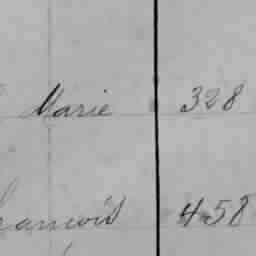 Marie 328
François 458